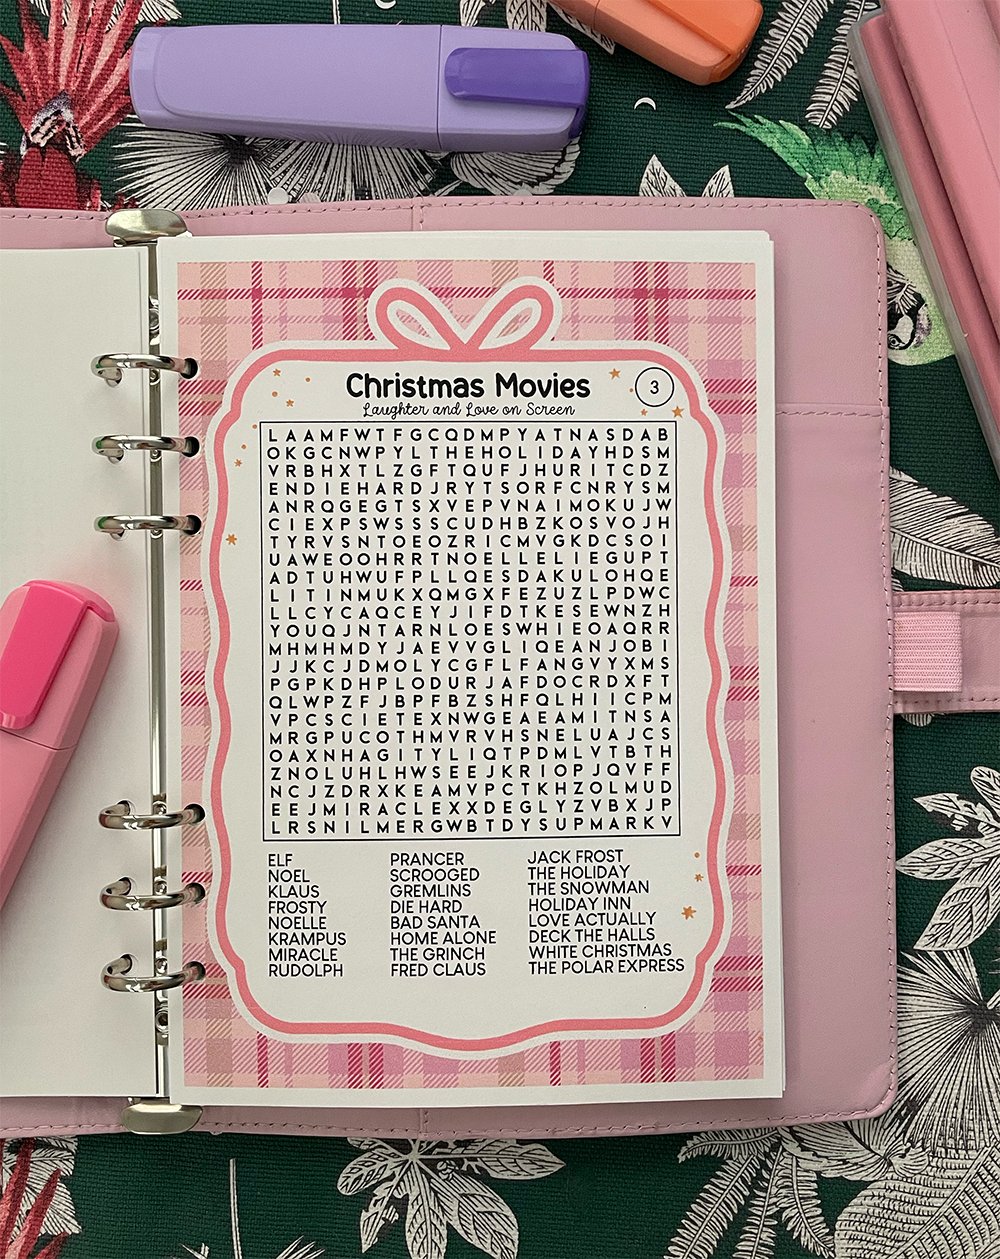 Christmas Movies
3
Laughter and Love on Screen
L A A M F W T F G C Q D M P Y A T N A S D A B
O K G C N W P Y L T H E H O L I D A Y H D S M
V R B H X T L Z G F T Q U F J H U R I T C D Z
E N D I E H A R D J R Y T S O R F C N R Y S M
A N R Q G E G T S X V E P V N A I M O K U J W
C I E X P S W S S S C U D H B Z K O S V O J H
T Y R V S N T O E O Z R I C M V G K D C S O I
U A W E O O H R R T N O E L L E L I E G U P T
A D T U H W U F P L L Q E S D A K U L O H Q E
L I T I N M U K X Q M G X F E Z U Z L P D W C
L L C Y C A Q C E Y J I F D T K E S E W N Z H
Y O U Q J N T A R N L O E S W H I E O A Q R R
M H M H M D Y J A E V V G L I Q E A N J O B I
J J K C J D M O L Y C G F L F A N G V Y X M S
P G P K D H P L O D U R J A F D O C R D X F T
Q L W P Z F J B P F B Z S H F Q L H I I C P M
V P C S C I E T E X N W G E A E A M I T N S A
M R G P U C O T H M V R V H S N E L U A J C S
O A X N H A G I T Y L I Q T P D M L V T B T H
Z N O L U H L H W S E E J K R I O P J Q V F F
N C J Z D R X K E A M V P C T K H Z O L M U D
E E J M I R A C L E X X D E G L Y Z V B X J P
L R S N I L M E R G W B T D Y S U P M A R K V
ELF PRANCER JACK FROST
NOEL SCROOGED THE HOLIDAY
KLAUS GREMLINS THE SNOWMAN
FROSTY DIE HARD HOLIDAY INN
NOELLE BAD SANTA LOVE ACTUALLY
KRAMPUS HOME ALONE DECK THE HALLS
MIRACLE THE GRINCH WHITE CHRISTMAS
RUDOLPH FRED CLAUS THE POLAR EXPRESS